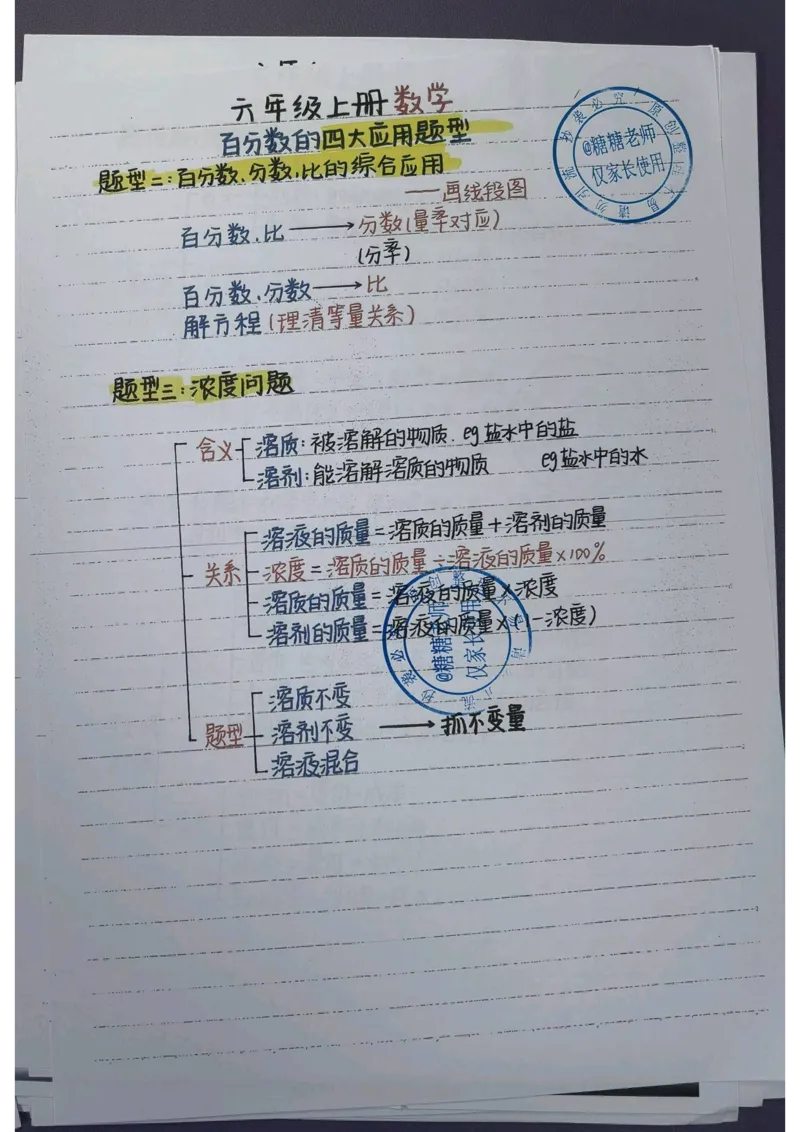 六年级上册数学
百分数的四大应用题型
题型二:百分数、分数、比的综合应用
——画线段图
百分数、比 → 分数(量率对应)
(分率)
百分数、分数 → 比
解方程(理清等量关系)
题型三:浓度问题
含义
溶质:被溶解的物质. eg盐水中的盐
溶剂:能溶解溶质的物质 eg盐水中的水
关系
溶液的质量=溶质的质量+溶剂的质量
浓度=溶质的质量÷溶液的质量×100%
溶质的质量=溶液的质量×浓度
溶剂的质量=溶液的质量×(1-浓度)
题型
溶质不变
溶剂不变 → 抓不变量
溶液混合
原创整理不易 请勿引流 抄袭必究
@糖糖老师
仅家长使用
@糖糖老师
仅家长使用